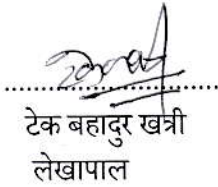 टेक बहादुर खत्री
लेखापाल